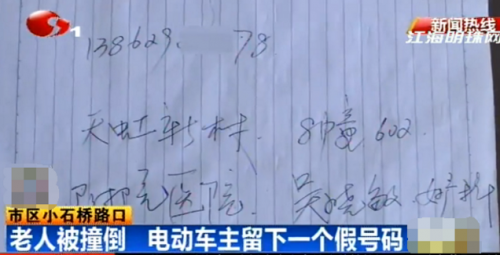 1
新闻热线
江海明珠网
138629 78
天虹新村 8幢602
医院 吴晓敏 妇产科
市区小石桥路口
老人被撞倒 电动车主留下一个假号码